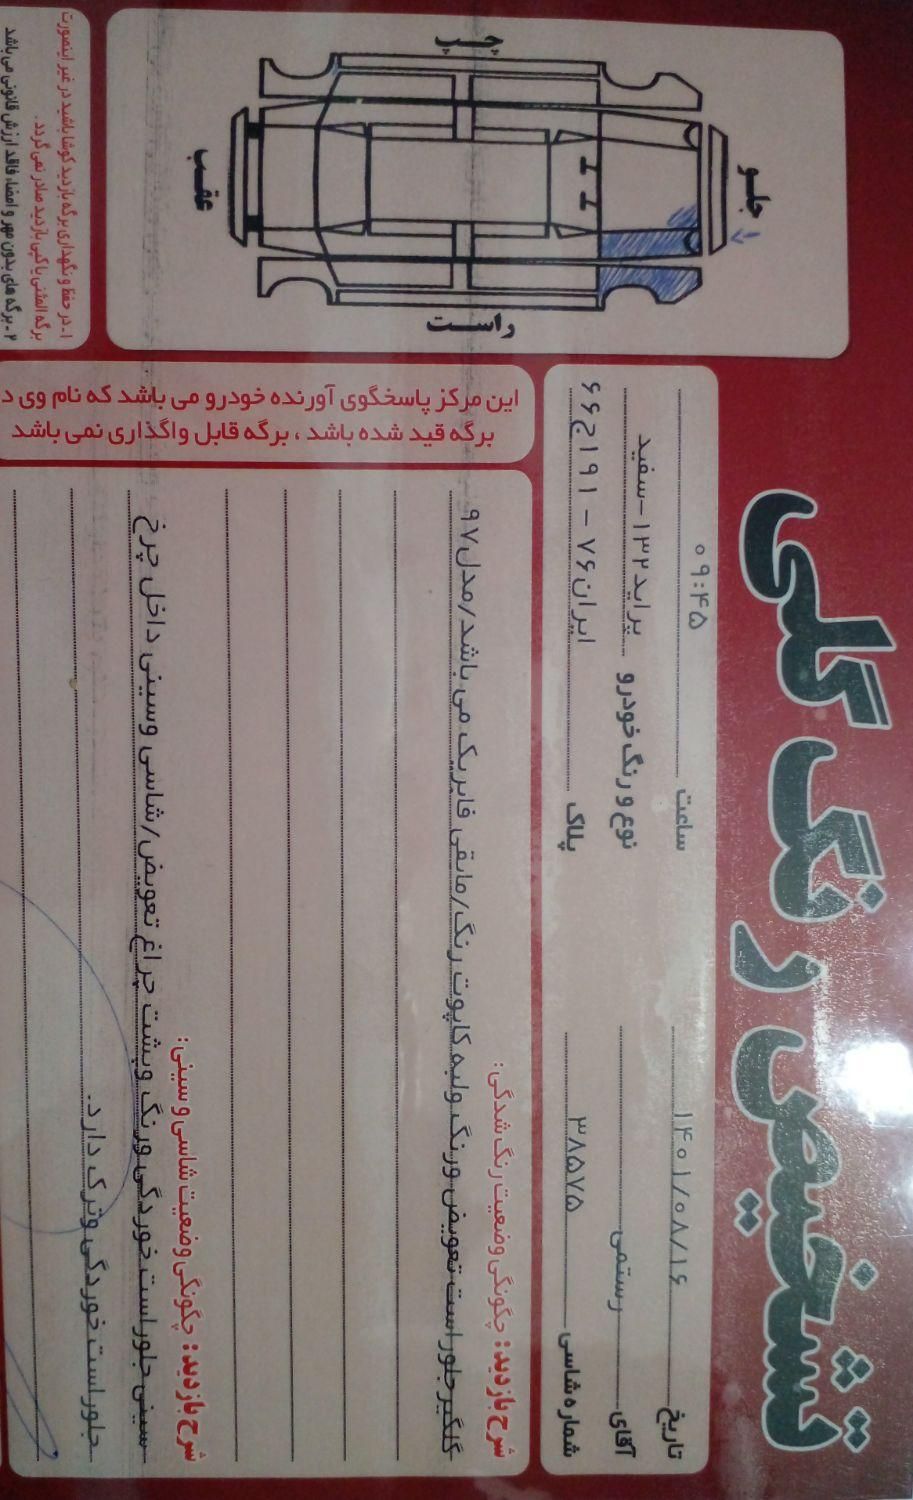 تشخیص رنگ گلی
تاریخ ۱۴۰۱/۰۸/۱۶ ساعت ۰۹:۴۵
آقای رستمی نوع و رنگ خودرو پراید ۱۳۲-سفید
شماره شاسی ۳۸۵۷۵ پلاک ایران ۷۶ - ۱۹۱ج۶۶
شرح بازدید: چگونگی وضعیت رنگ شدگی:
گلگیر جلو راست تعویض ورنگ ولبه کاپوت رنگ/مابقی فابریک می باشد/مدل۹۷
شرح بازدید: چگونگی وضعیت شاسی و سینی:
سینی جلو راست خوردگی ورنگ وپشت چراغ تعویض/شاسی وسینی داخل چرخ
جلو راست خوردگی وترک دارد.
جلو
چپ
راست
عقب
این مرکز پاسخگوی آورنده خودرو می باشد که نام وی د
برگه قید شده باشد ، برگه قابل واگذاری نمی باشد
۱- در حفظ و نگهداری برگه بازدید کوشا باشید در غیر اینصورت
برگه المثنی یا کپی بازدید صادر نمی گردد.
۲- برگه های بدون مهر و امضاء فاقد ارزش قانونی می باشد